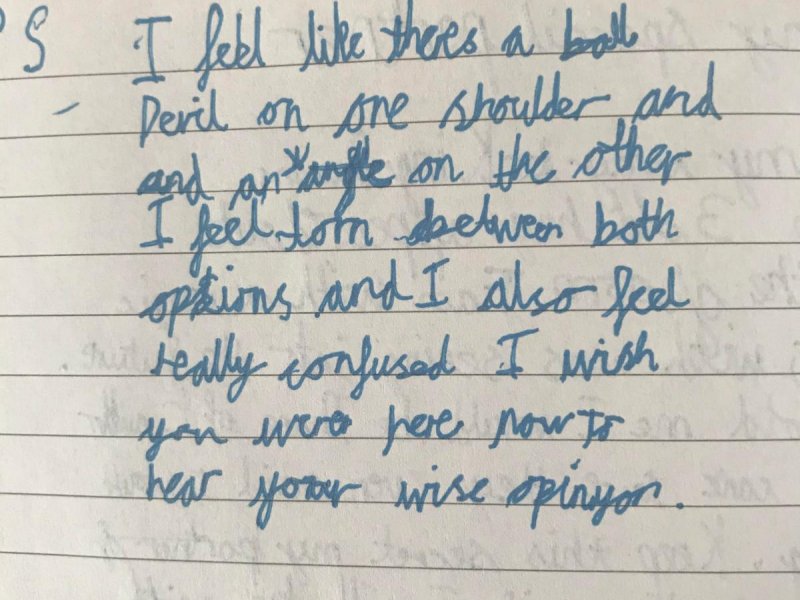 PS I feel like theres a ball
- Devil on one shoulder and
and an* angle on the other
I feel torn between both
options and I also feel
really confused I wish
you were here now to
hear your wise opinyon.